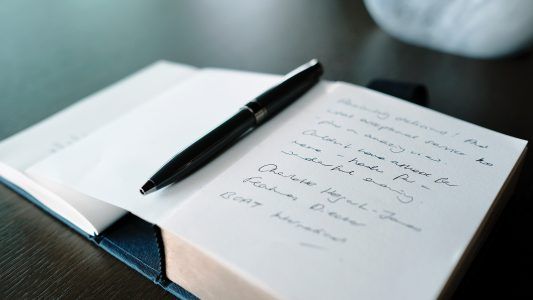 Absolutely delicious! And
what exceptional service to
a
Couldn't have asked for
more - thank
wonderful evening.
Charlotte Hogarth-Jones
Features Director
BOAT International